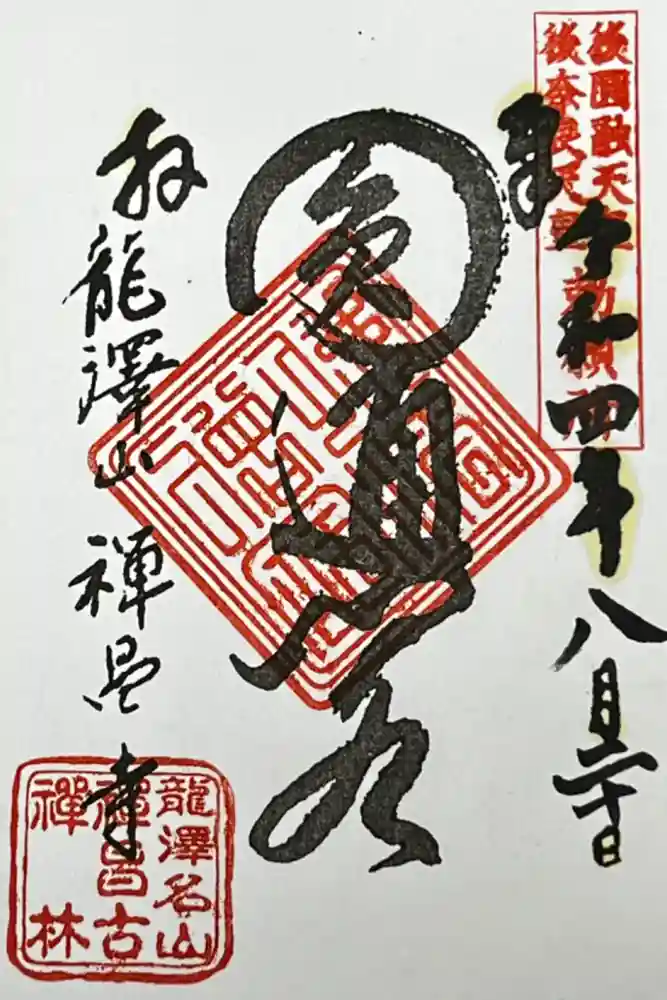 後圓融天皇
後奈良天皇
勅願所
令和四年八月二十日
圓通閣
於龍澤山 禪昌寺
龍澤名山
禪昌古
禪林